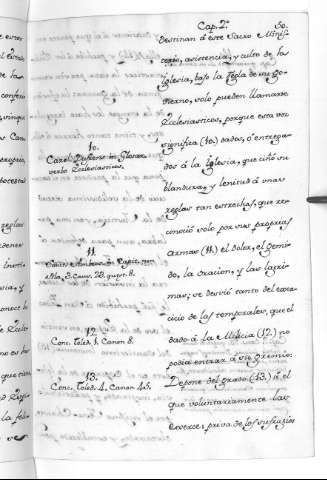 Cap. 2.º
50.
destinan á este Sacro Minis-
terio, asistencia, y culto de la
Iglesia, bajo la regla de su Go-
vierno, solo pueden llamarse
Ecclesiasticos, porque esta voz
significa (10.) dados, ó entrega-
dos á la Iglesia, que ciñó su
blandura, y lenitud á unas
reglas tan estrechas, que reco-
noció solo por sus propias
Armas (11.) el dolor, el gemi-
do, la oracion, y las lagri-
mas; se desvió tanto del exer-
cicio de las temporales, que el
dado á la Milicia (12.) no
podia entrar á su Gremio:
Depone del grado (13.) á el
que voluntariamente las
exerce; priva de los sufragios
10.
in Glossar.
verbo Ecclesiasticus.
11.
3. Caus. 23. quæst. 8.
12.
Conc. Toled. 1. Canon 8.
13.
Conc. Toled. 4. Canon 45.